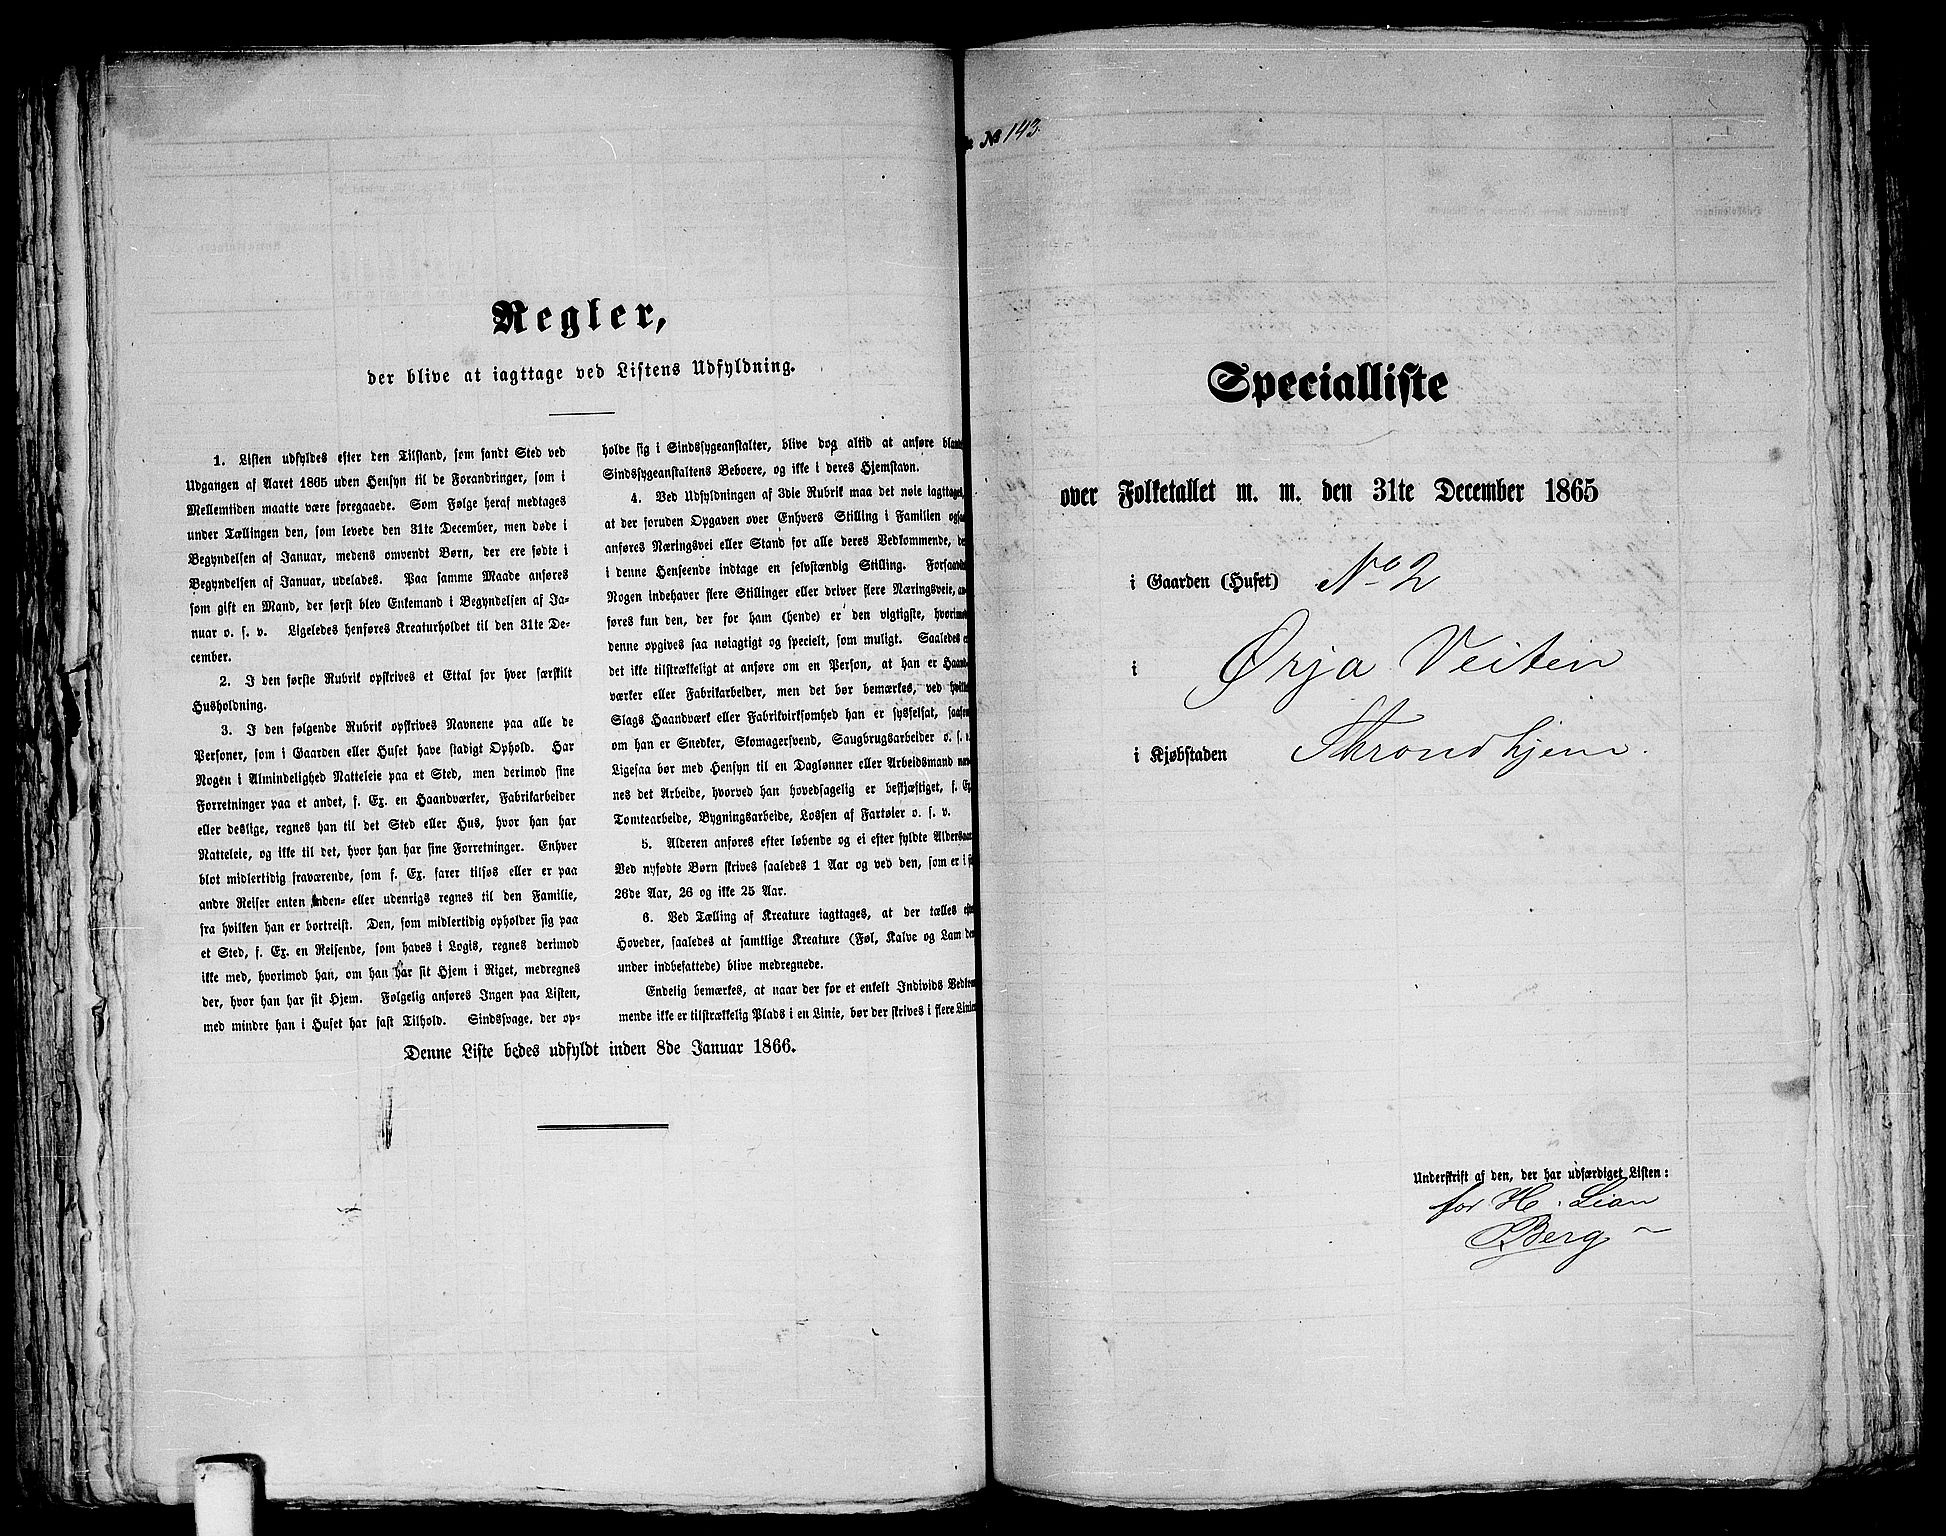 Regler,
der blive at iagttage ved Listens Udfyldning.
1. Listen udfyldes efter den Tilstand, som fandt Sted ved
Udgangen af Aaret 1865 uden Hensyn til de Forandringer, som i
Mellemtiden maatte være foregaaede. Som Følge heraf medtages
under Tællingen den, som levede den 31te December, men døde i
Begyndelsen af Januar, medens omvendt Børn, der ere fødte i
Begyndelsen af Januar, udelades. Paa samme Maade anføres
som gift en Mand, der først blev Enkemand i Begyndelsen af Ja-
nuar o. s. v. Ligeledes henføres Kreaturholdet til den 31te De-
cember.
2. I den første Rubrik opskrives et Ettal for hver særskilt
Husholdning.
3. I den følgende Rubrik opskrives Navnene paa alle de
Personer, som i Gaarden eller Huset have stadigt Ophold. Har
Nogen i Almindelighed Natteleie paa et Sted, men derimod sine
Forretninger paa et andet, f. Ex. en Haandværker, Fabrikarbeider
eller deslige, regnes han til det Sted eller Hus, hvor han har
Natteleie, og ikke til det, hvor han har sine Forretninger. Enhver
blot midlertidig fraværende, som f. Ex. farer tilsøs eller er paa
andre Reiser enten inden- eller udenrigs regnes til den Familie,
fra hvilken han er bortreist. Den, som midlertidig opholder sig paa
et Sted, f. Ex. en Reisende, som haves i Logis, regnes derimod
ikke med, hvorimod han, om han har sit Hjem i Riget, medregnes
der, hvor han har sit Hjem. Følgelig anføres Ingen paa Listen,
med mindre han i Huset har fast Tilhold. Sindssvage, der op-
holde sig i Sindssygeanstalter, blive dog altid at anføre blandt
Sindssygeanstaltens Beboere, og ikke i deres Hjemstavn.
4. Ved Udfyldningen af 3die Rubrik maa det nøie iagttages,
at der foruden Opgaven over Enhvers Stilling i Familien ogsaa
anføres Næringsvei eller Stand for alle deres Vedkommende, de
i denne Henseende indtage en selvstændig Stilling. Forsaavidt
Nogen indehaver flere Stillinger eller driver flere Næringsveie, an-
føres kun den, der for ham (hende) er den vigtigste, hvorimod
denne opgives saa nøiagtigt og specielt, som muligt. Saaledes e
det ikke tilstrækkeligt at anføre om en Person, at han er Haand-
værker eller Fabrikarbeider, men det bør bemærkes, ved hvilke
Slags Haandværk eller Fabrikvirksomhed han er sysselsat, saasom
om han er Snedker, Skomagersvend, Saugbrugsarbeider o. s. v.
Ligesaa bør med Hensyn til en Daglønner eller Arbeidsmand næv-
nes det Arbeide, hvorved han hovedsagelig er beskjæftiget, f. Ex
Tomtearbeide, Bygningsarbeide, Lossen af Fartøier o. s. v.
5. Alderen anføres efter løbende og ei efter fyldte Aldersaar.
Ved nyfødte Børn skrives saaledes 1 Aar og ved den, som er i sit
26de Aar, 26 og ikke 25 Aar.
6. Ved Tælling af Kreature iagttages, at der tælles efter
Hoveder, saaledes at samtlige Kreature (Føl, Kalve og Lam der-
under indbefattede) blive medregnede.
Endelig bemærkes, at naar der for et enkelt Individs Vedkom-
mende ikke er tilstrækkelig Plads i en Linie, bør der skrives i flere Linier
Denne Liste bedes udfyldt inden 8de Januar 1866.
№ 143.
Specialliste
over Folketallet m. m. den 31te December 1865
i Gaarden (Huset) No 2
i Ørja Veiten
i Kjøbstaden Throndhjem.
Underskrift af den, der har udfærdiget Listen:
for H. Lian
Berg